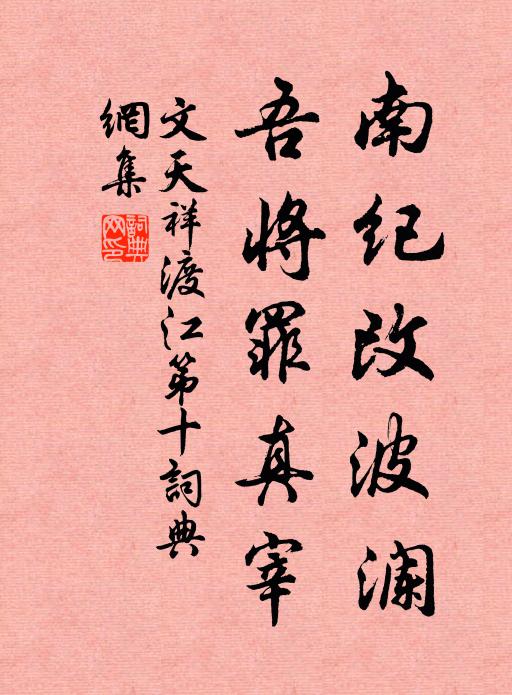 南纪改波澜
吾将罪真宰
文天祥渡江第十詞典
網集
詞典网印